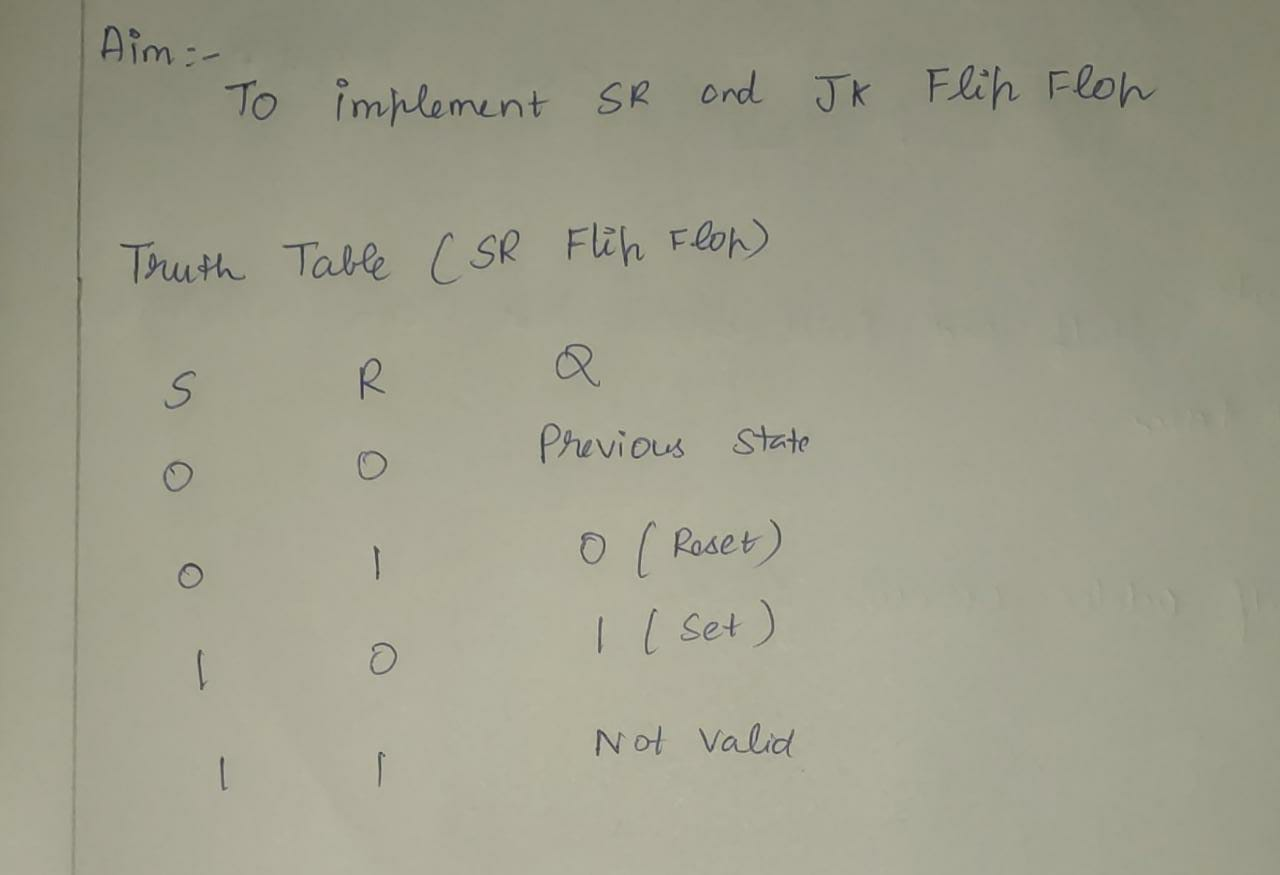 Aim :-
To implement SR and JK Flip Flop
Truth Table ( SR Flip Flop)
S R Q
0 0 Previous State
0 1 0 ( Reset )
1 0 1 ( Set )
1 1 Not Valid